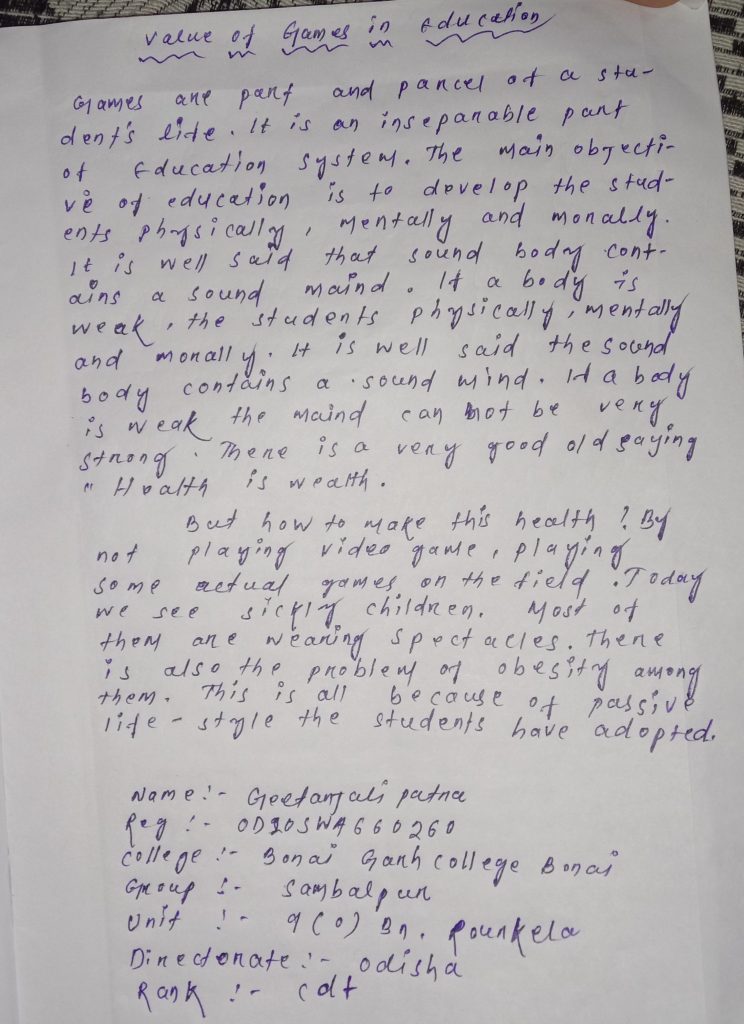 Value of Games in Education
Games are part and parcel of a stu-
dent's life. It is an inseparable part
of Education system. The main objecti-
ve of education is to develop the stud-
ents physically, mentally and morally.
It is well said that sound body cont-
ains a sound maind. If a body is
weak, the students physically, mentally
and morally. It is well said the sound
body contains a sound mind. If a body
is weak the maind can not be very
strong. There is a very good old saying
" Health is wealth.
But how to make this health? By
not playing video game, playing
some actual games on the field. Today
we see sickly children. Most of
them are wearing spectacles. There
is also the problem of obesity among
them. This is all because of passive
life-style the students have adopted.
Name:- Geetanjali patra
Reg :- OD20SWA660260
College :- Bonai Garh college Bonai
Group :- Sambalpur
Unit :- 9(O) Bn. Rourkela
Directorate:- odisha
Rank :- cdt